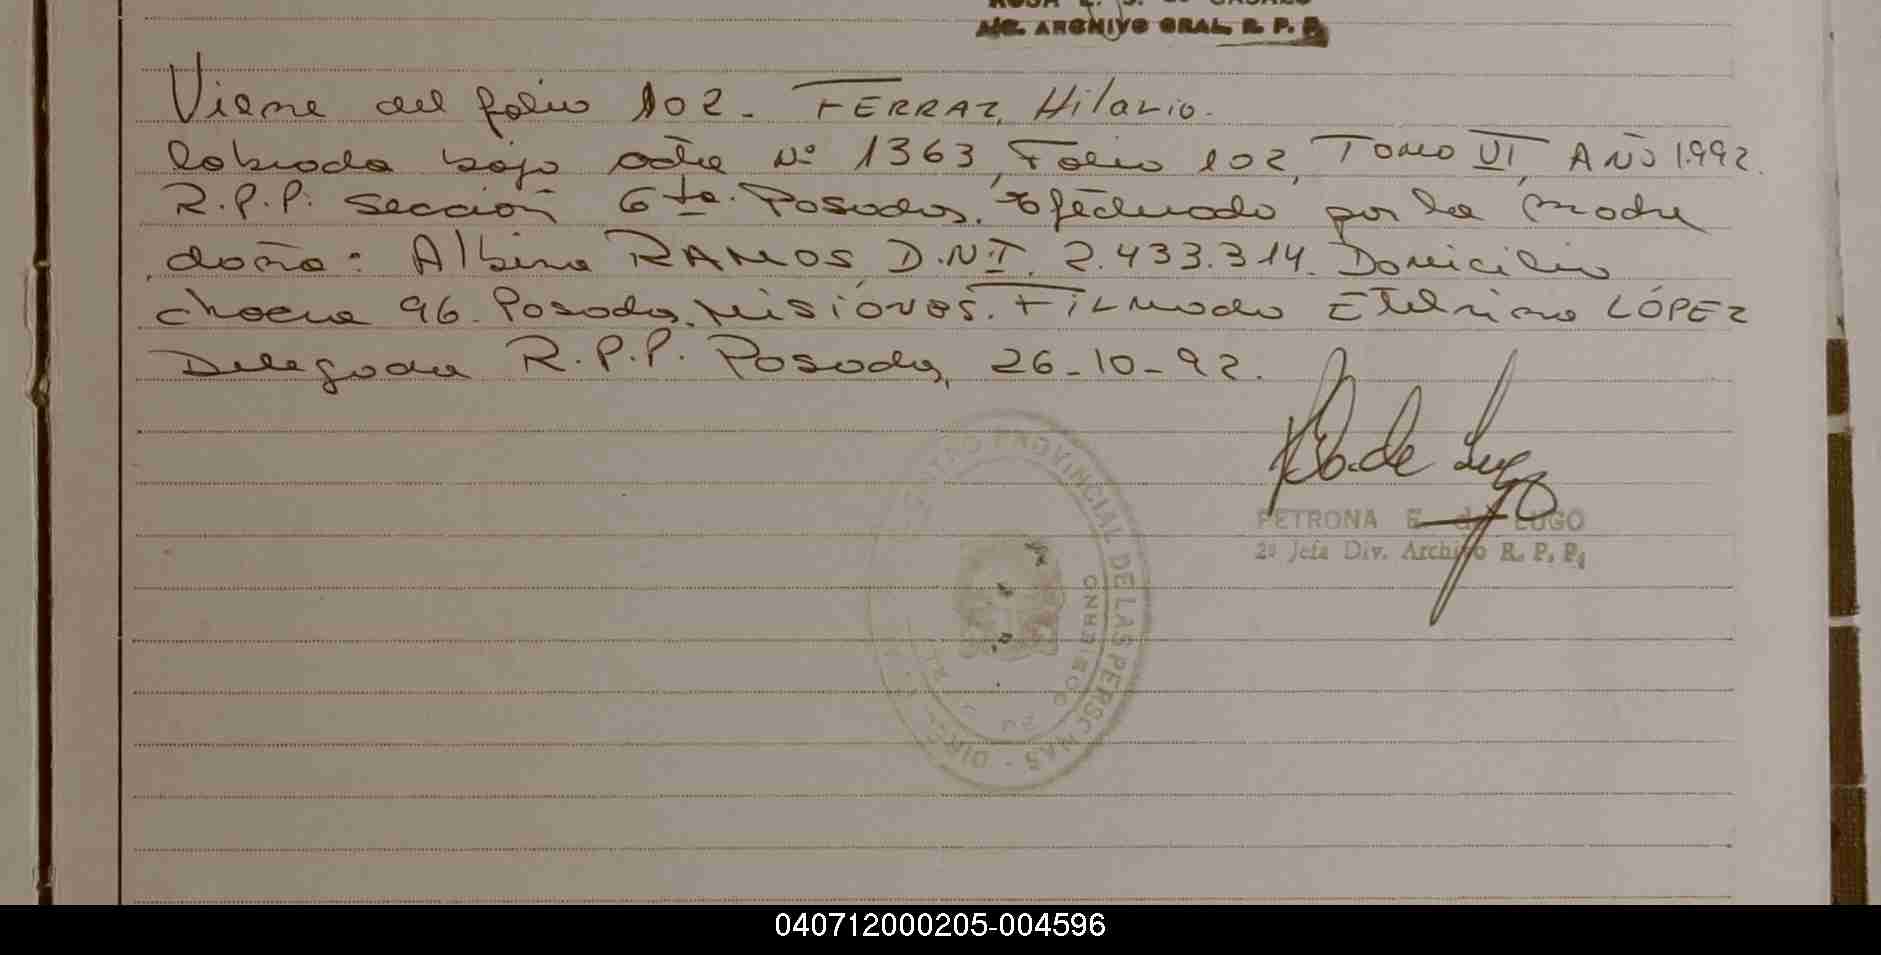 A/C. ARCHIVO GRAL. R. P. P.
Viene del folio 102. FERRAZ, Hilario.
labrada bajo acta Nº 1363, Folio 102, Tomo VI, AÑO 1.992.
R.P.P. Sección 6ta. Posadas. efectuado por la madre
doña: Albina RAMOS D.N.I. 2.433.314. Domicilio
chacra 96. Posadas, Misiónes. Filmado Etelvina LÓPEZ
Delegada R.P.P. Posadas, 26-10-92.
PETRONA E. de LUGO
2º Jefa Div. Archivo R. P. P.
REGISTRO PROVINCIAL DE LAS PERSONAS
040712000205-004596